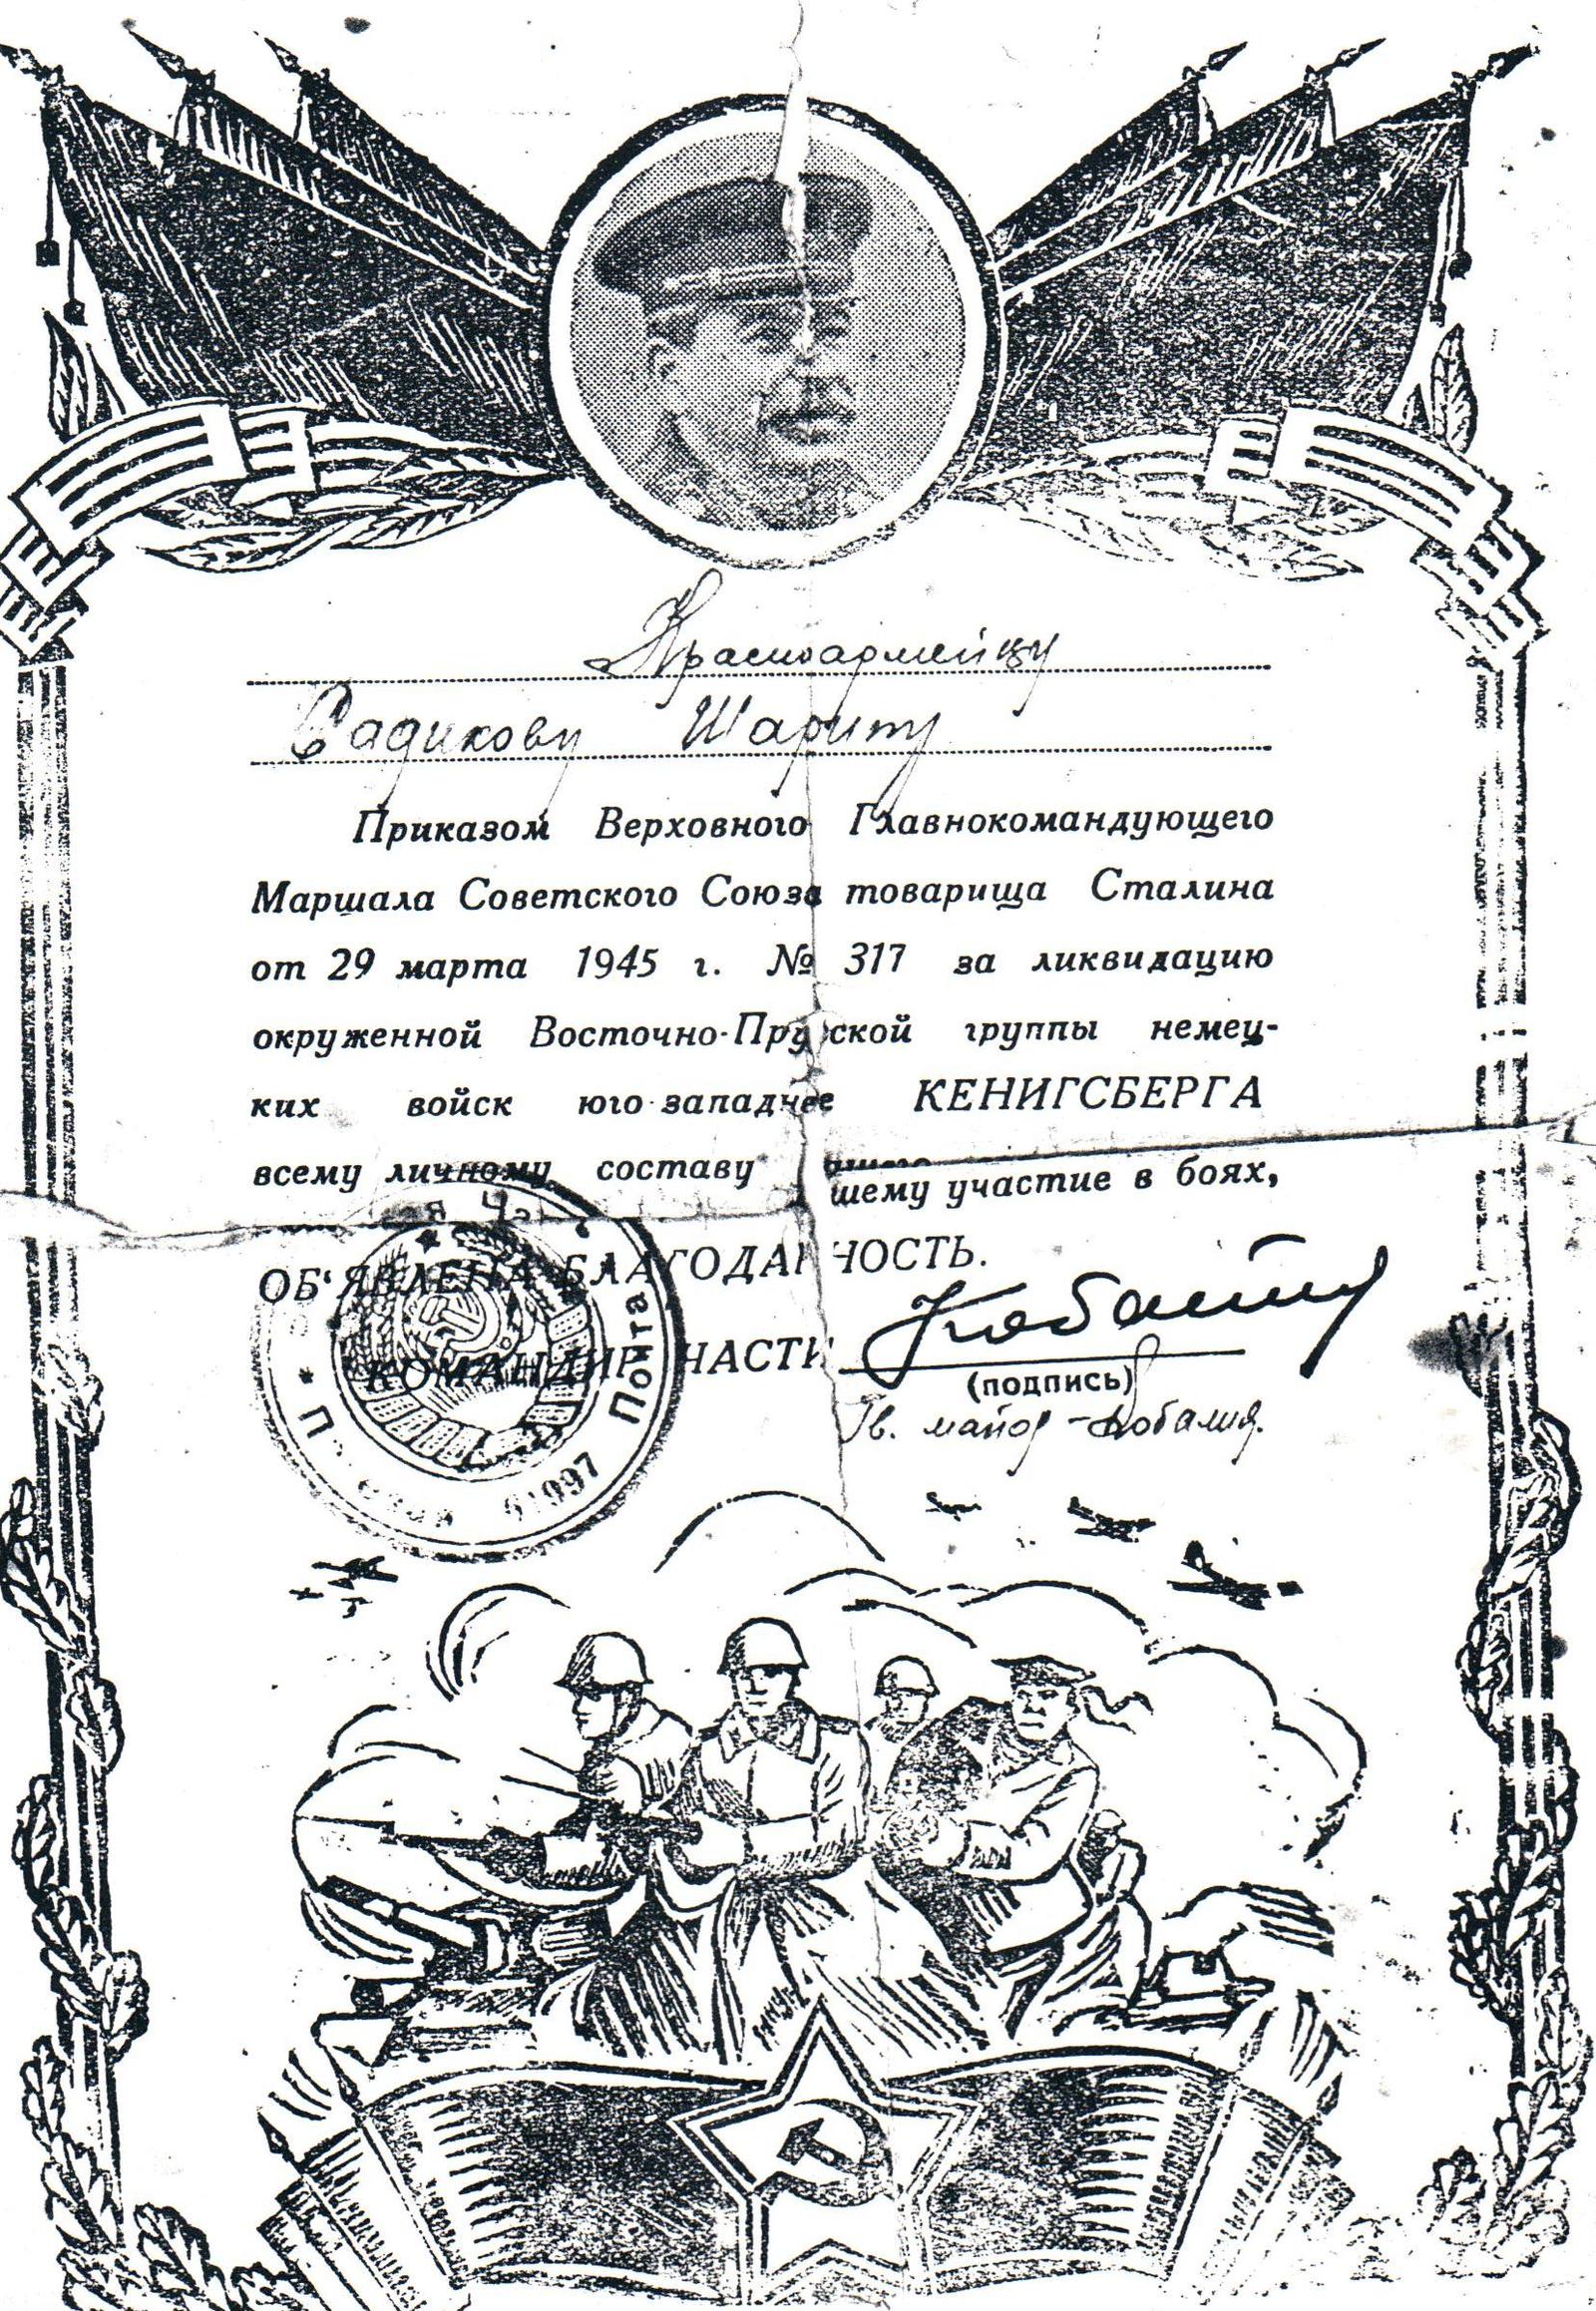 Красноармейцу
Садикову Шарипу
Приказом Верховного Главнокомандующего
Маршала Советского Союза товарища Сталина
от 29 марта 1945 г. № 317 за ликвидацию
окруженной Восточно-Прусской группы немец-
ких войск юго-западнее КЕНИГСБЕРГА
всему личному составу шему участие в боях,
ОБ'ЯВЛЕНА БЛАГОДАРНОСТЬ.
КОМАНДИР ЧАСТИ
(подпись)
Гв. майор - Кобалия.
Почта